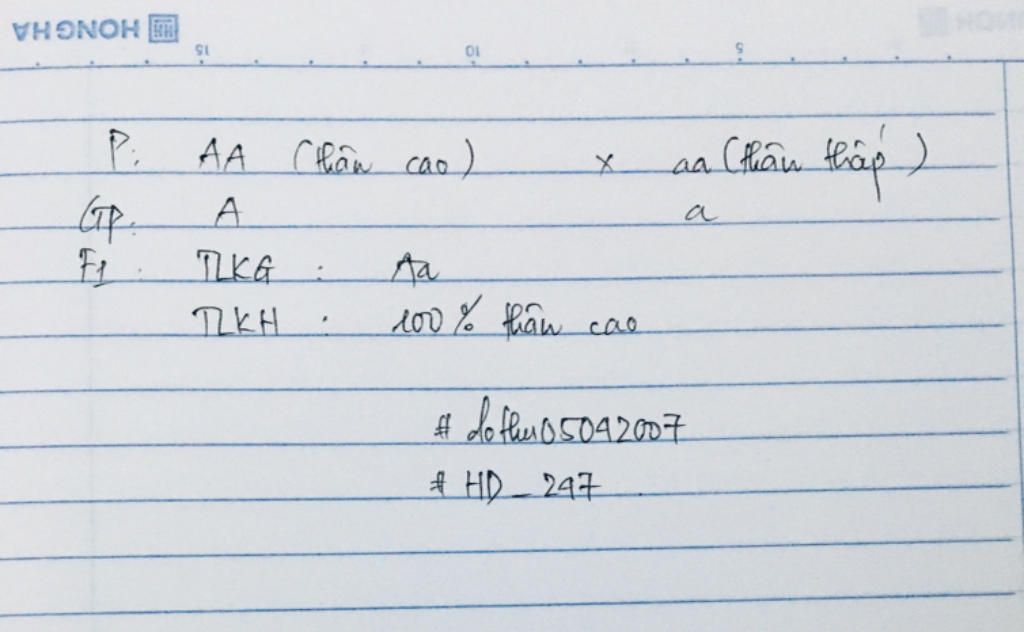 HONG HA
15 10 5
P: AA (thân cao) x aa (thân thấp)
Gp: A a
F1: TLKG : Aa
TLKH : 100% thân cao
# dothu05042007
# HD_247